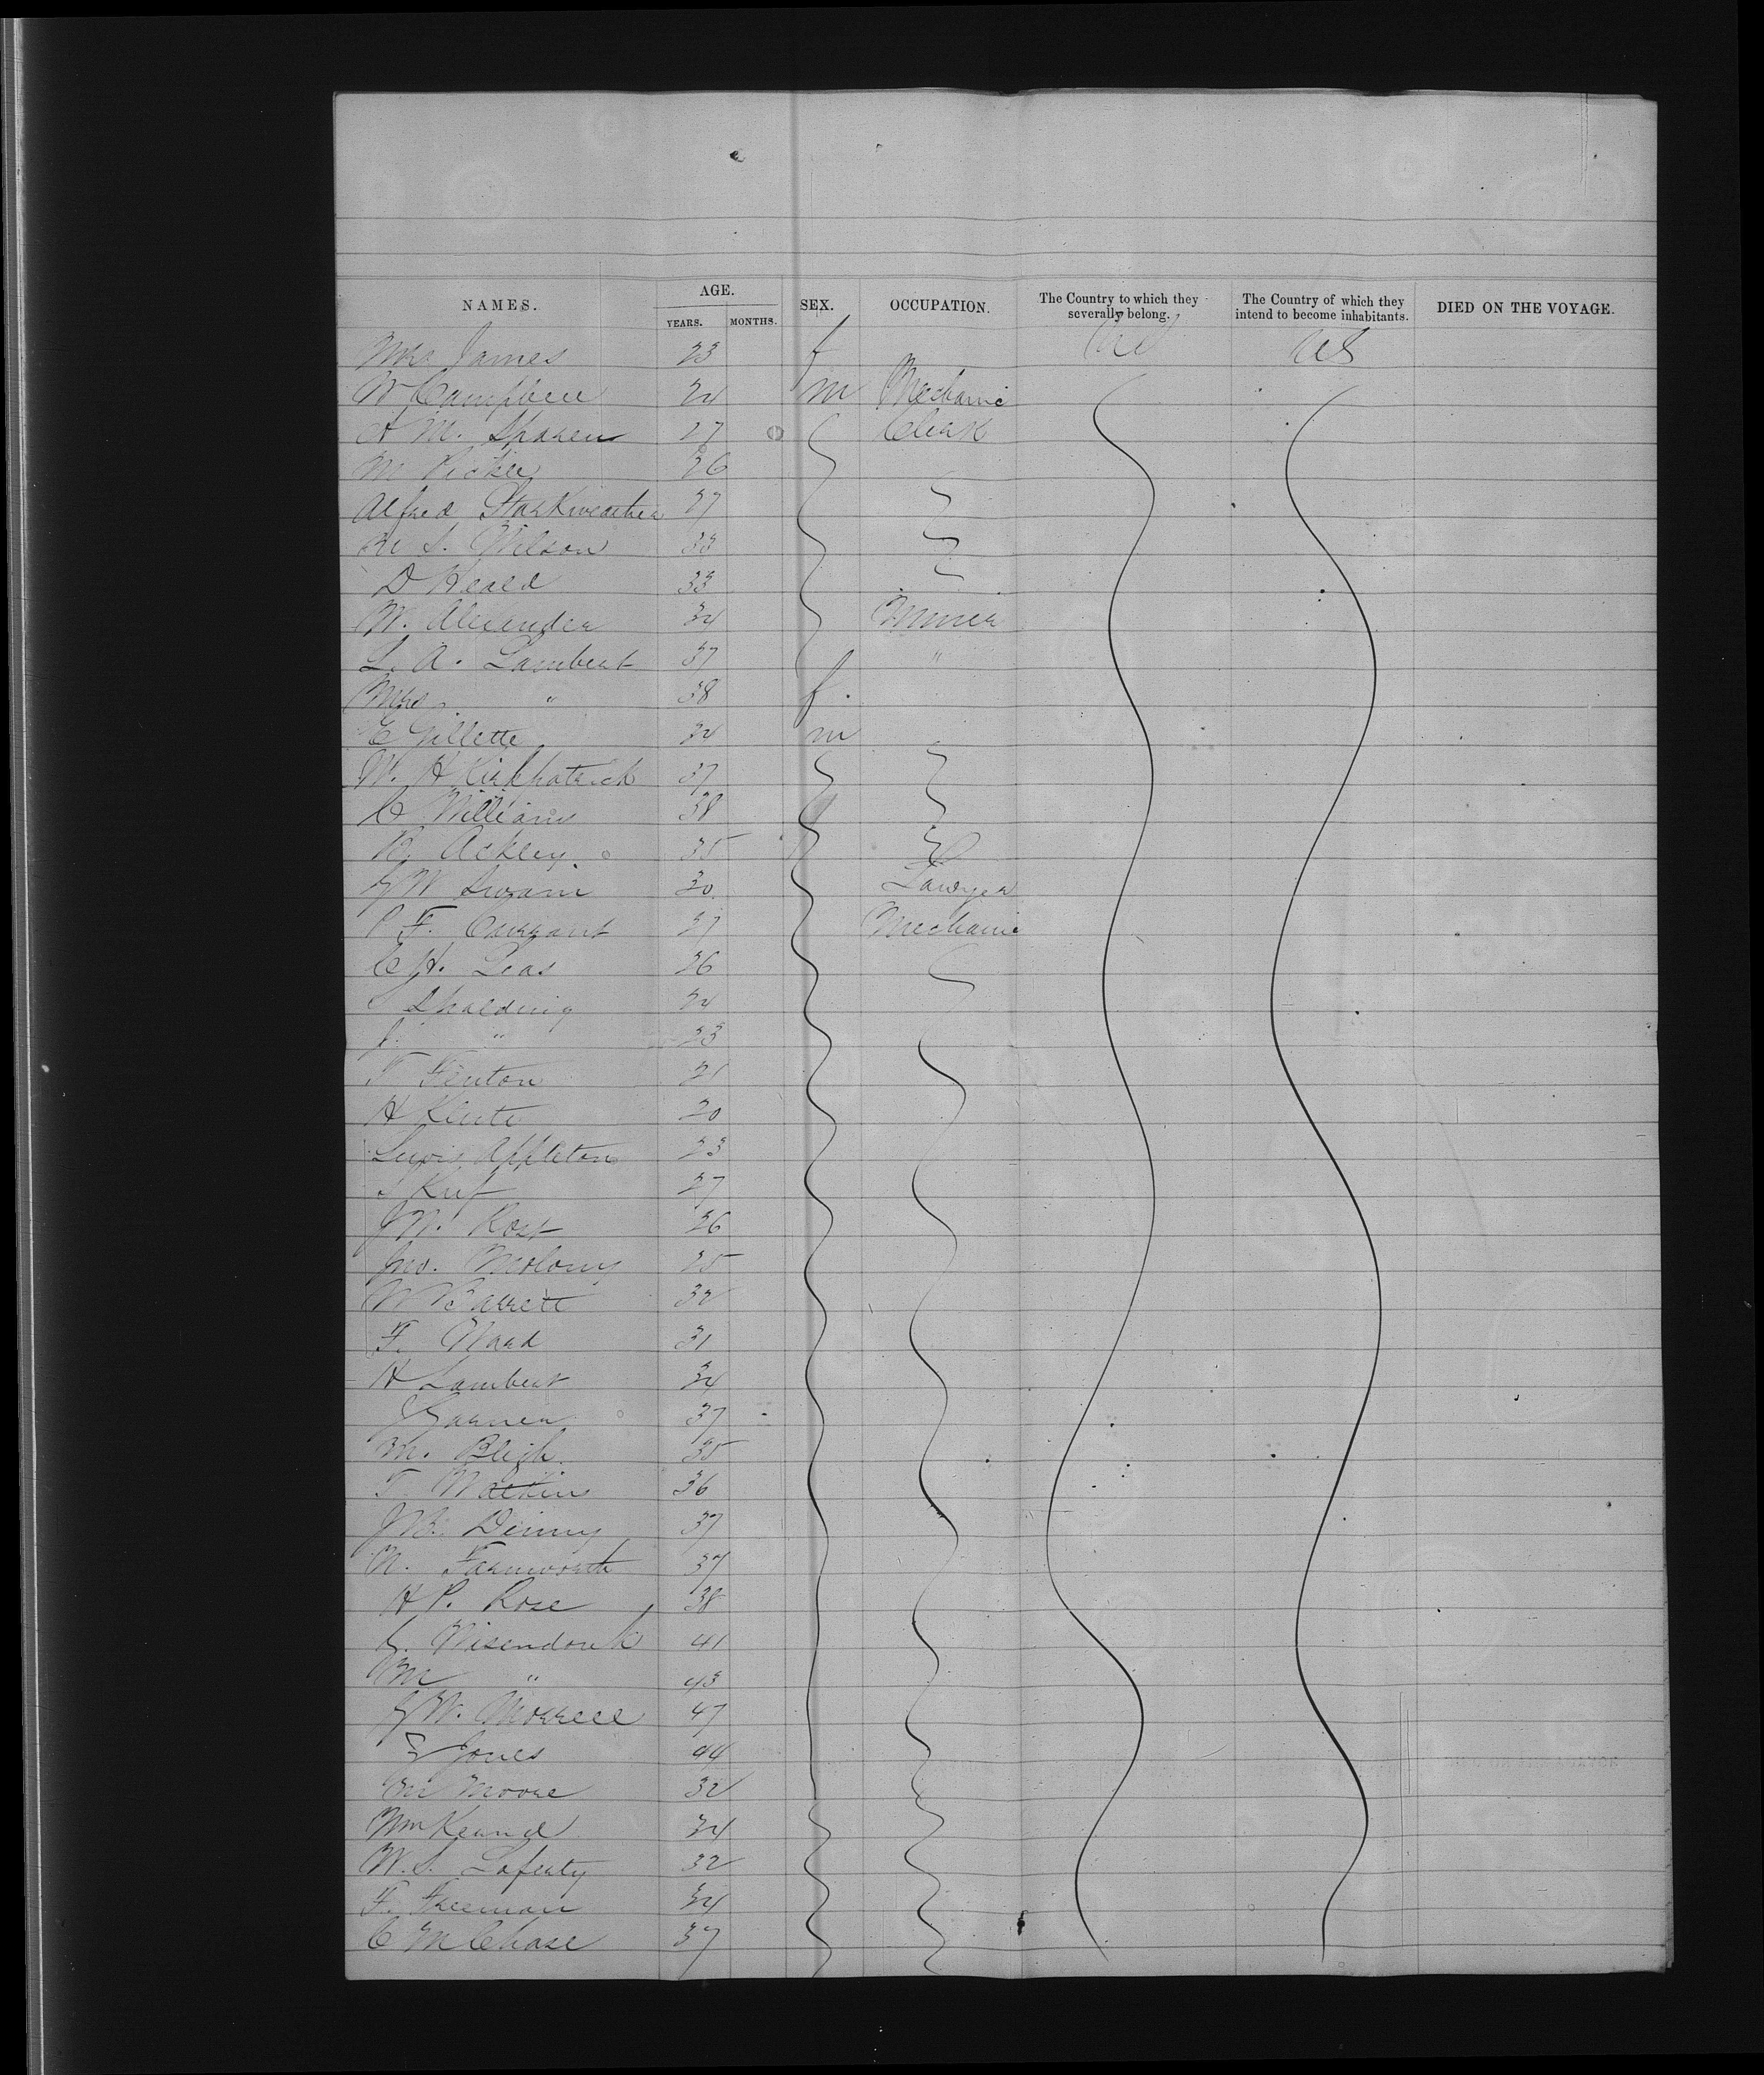 NAMES. AGE. SEX. OCCUPATION. The Country to which they severally belong. The Country of which they intend to become inhabitants. DIED ON THE VOYAGE.
YEARS. MONTHS.
Mrs James 23 f US US
W Campbell 24 m Mechanic
A M. Sparen 27 Clerk
M 26
Alfred Starkweather 37
S. Wilson 33
D Heald 33
W. Alexander 34 Miner
L. A. Lambert 37 "
Mrs " 38 f.
E Gillette 34 m
W. H Kirkpatrick 37
C Williams 38
R. Ackley 35
G W Swain 30 Lawyer
P F. Currant 27 Mechanic
C H. Leas 26
Spalding 24
J. " 23
F Fenton 21
H 20
Lewis Appleton 23
27
J W. Rost 26
Jno. 25
W Barrett 32
F. Ward 31
H Lambert 34
J Garner 37
M. Bleigh 35
T. 36
J B. Denny 37
N. Farnworth 37
H P. Rose 38
G. Wisendonk 41
M " 43
G W. Morrell 47
Jones 44
M Moore 32
Wm 34
W. S. Laferty 32
F. Freeman 34
C M Chase 37